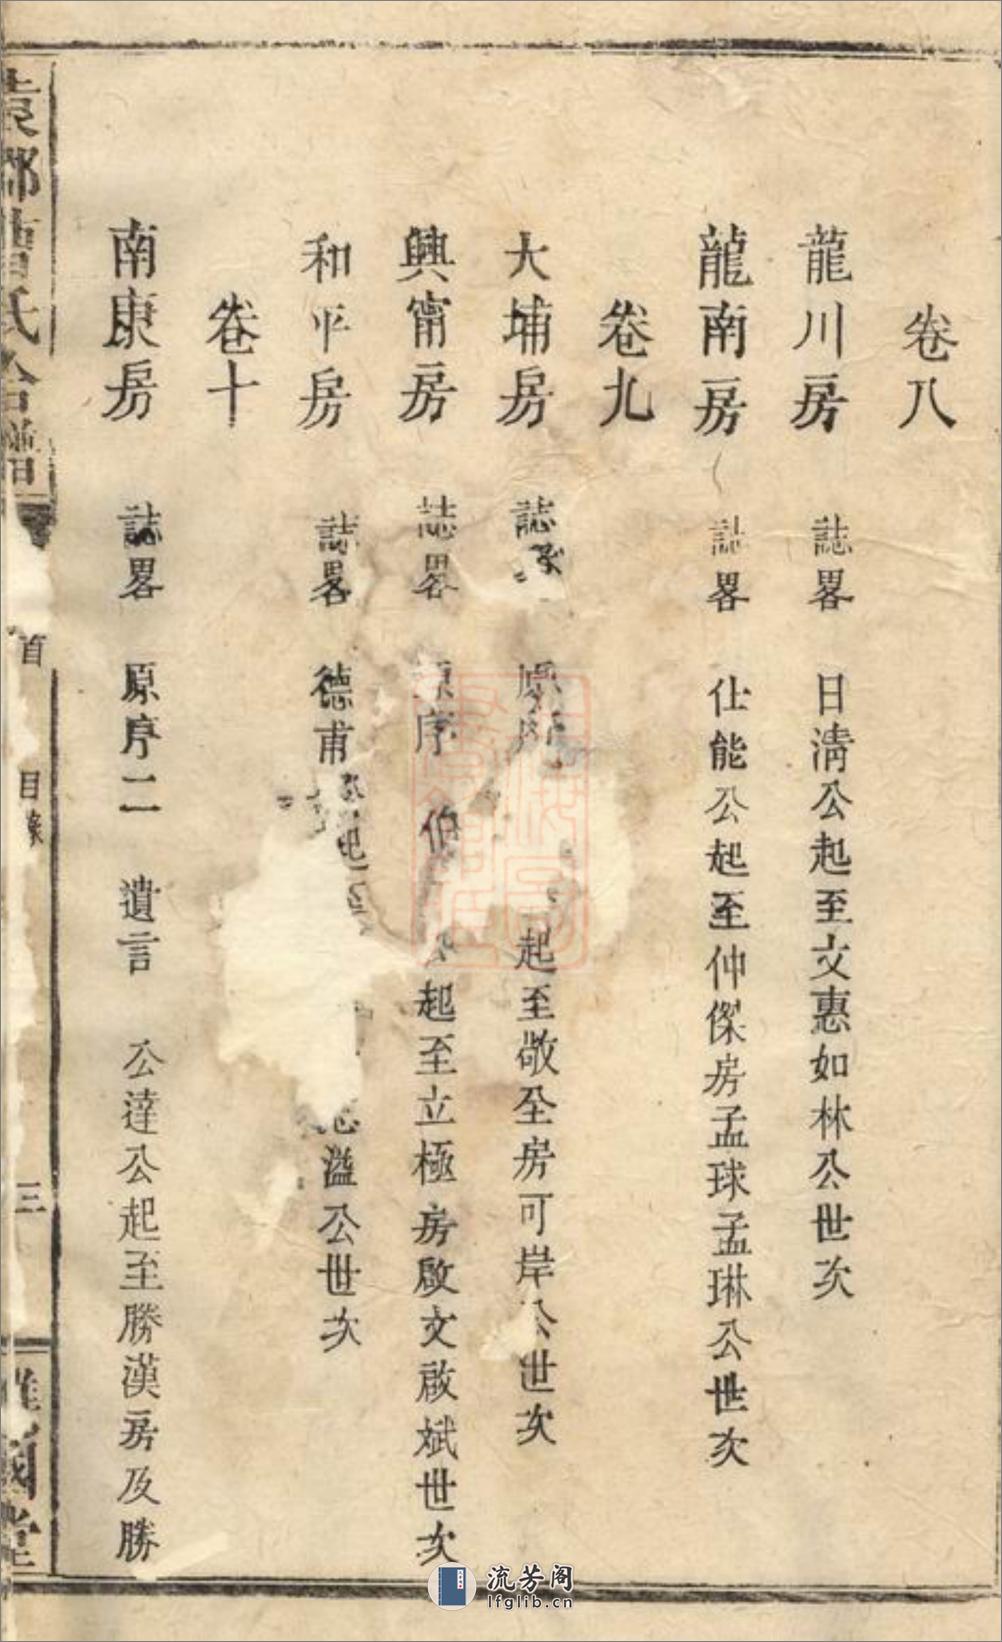 卷八
龍川房 誌畧 日淸公起至文惠如林公世次
龍南房 誌畧 仕能公起至仲傑房孟球孟琳公世次
卷九
大埔房 誌 原序 起至敬全房可岸公世次
興甯房 誌畧 原序 伯 公起至立極房啟文啟斌世次
和平房 誌畧 德甫 起至 溢公世次
卷十
南康房 誌畧 原序二 遺言 公達公起至勝漢房及勝
袁郡 氏合譜 首 目錄 三 國堂
流芳阁
lfglib.cn